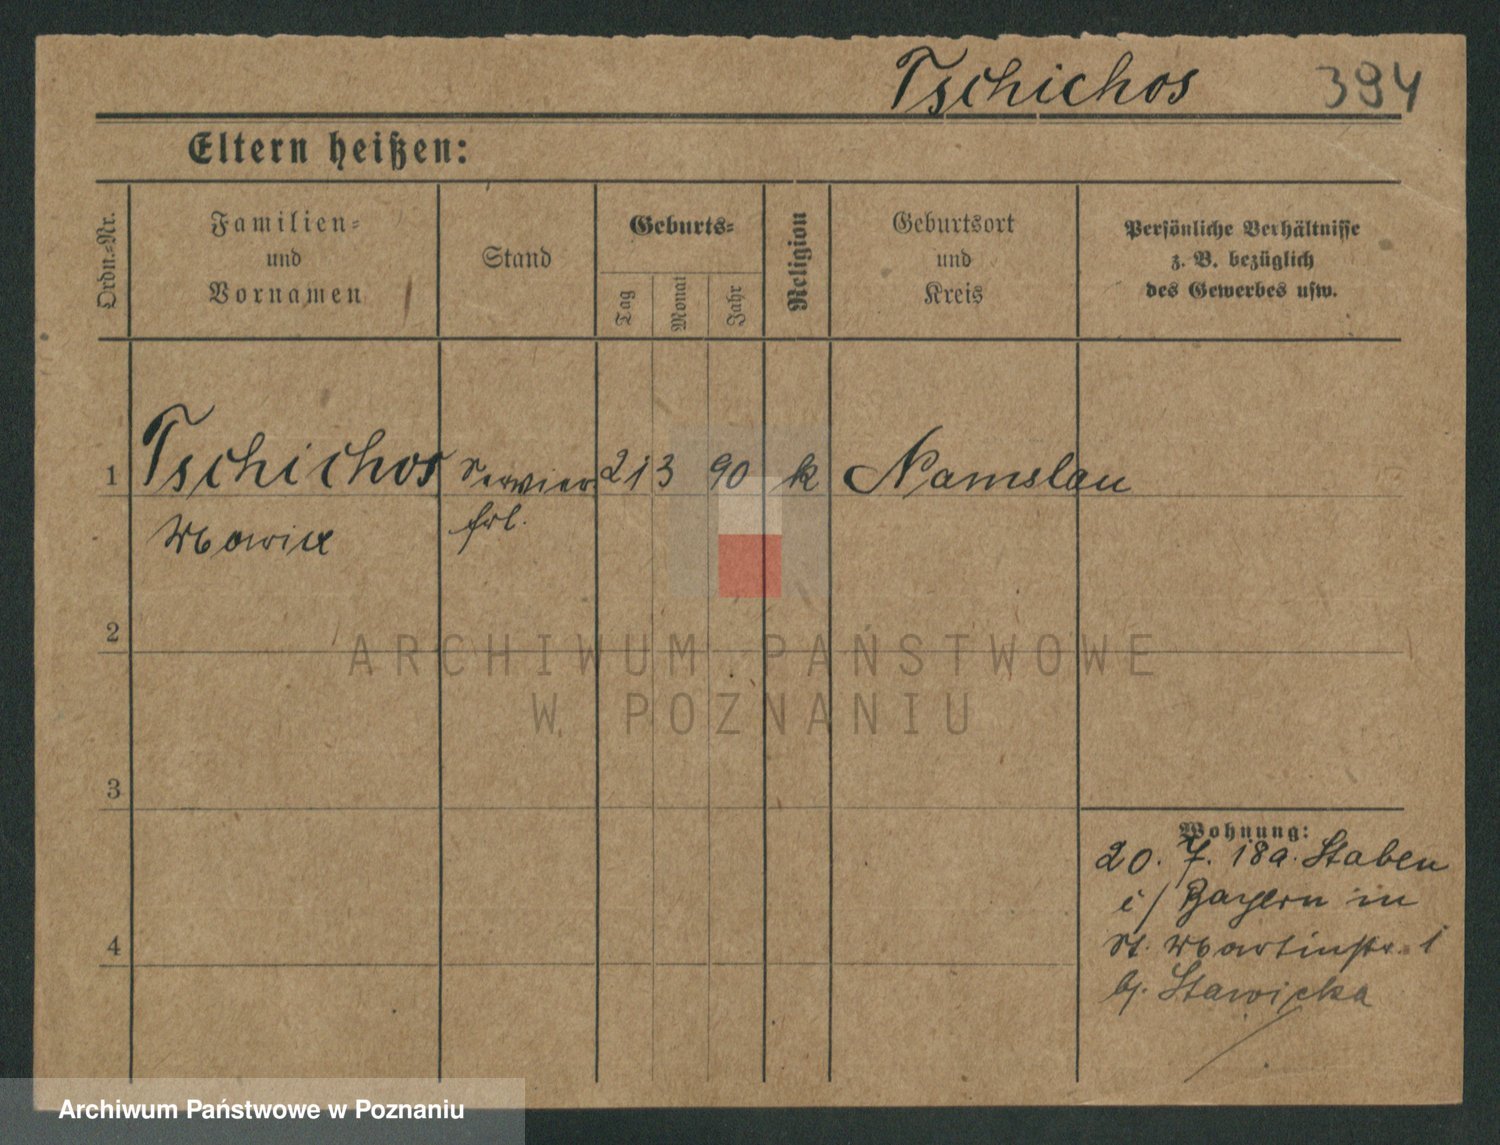 Tschichos 394
Eltern heißen:
Ordn.-Nr.
Familien-
und
Vornamen
Stand
Geburts-
Tag
Monat
Jahr
Religion
Geburtsort
und
Kreis
Persönliche Verhältnisse
z. B. bezüglich
des Gewerbes usw.
1 Tschichos Servier 21 3 90 k Namslau
Maria frl.
2
ARCHIWUM PAŃSTWOWE
W POZNANIU
3
Wohnung:
20. 7. 18 a. Staben
i/ Bayern in
4 St. Martinstr. 1
bj. Stawicka
Archiwum Państwowe w Poznaniu